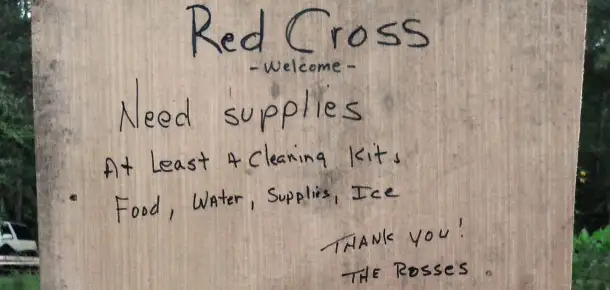 Red Cross
- Welcome -
Need supplies
At Least 4 Cleaning Kits
Food, Water, Supplies, Ice
THANK YOU!
THE ROSSES.